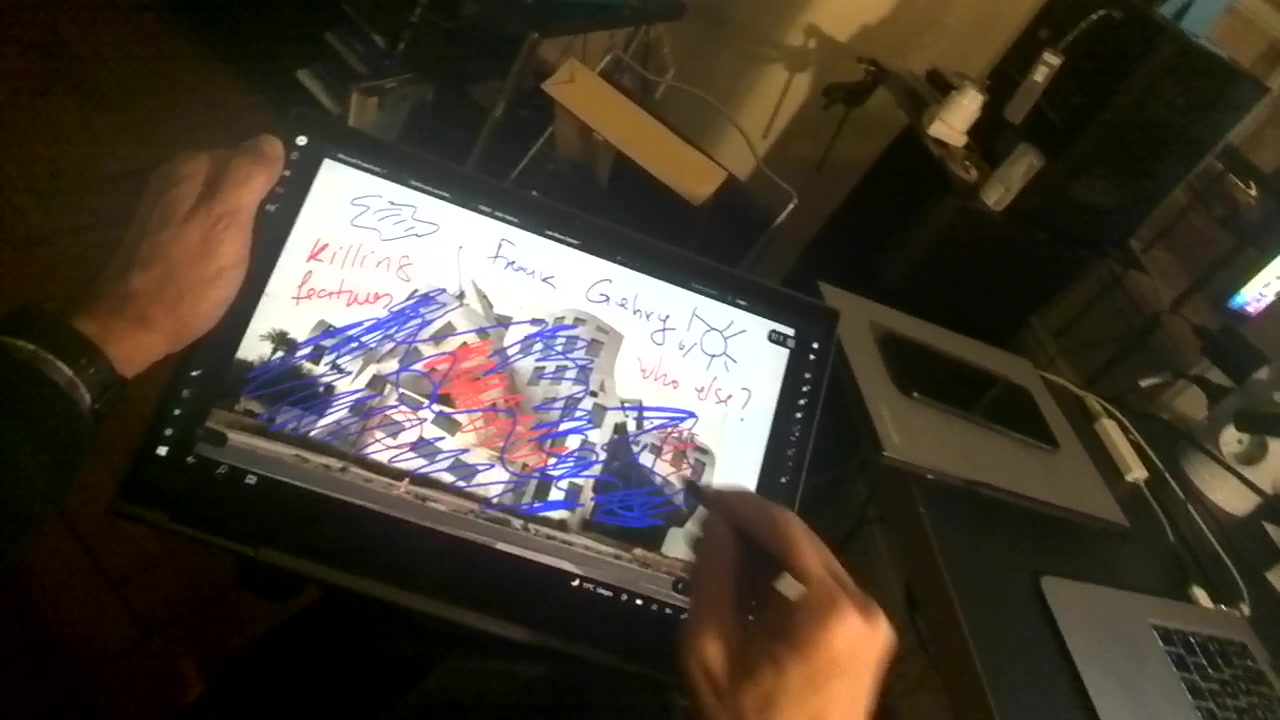 Killing
features
Frank Gehry!
who else?